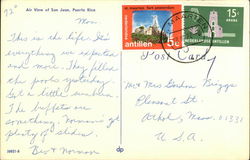 72°
Air View of San Juan, Puerto Rico
Mon.
This is the life. It's
everything we expected
and more. They filled
the pools yesterday.
Got a little sunburn.
The buffets are
something. Norman's got
plenty of slides.
Bev & Norman
antillen
15c
15
NEDERLANDSE ANTILLEN
Post Card
Mr & Mrs Gordon Briggs
Pleasant St.
Athol, Mass 01331
U.S.A.